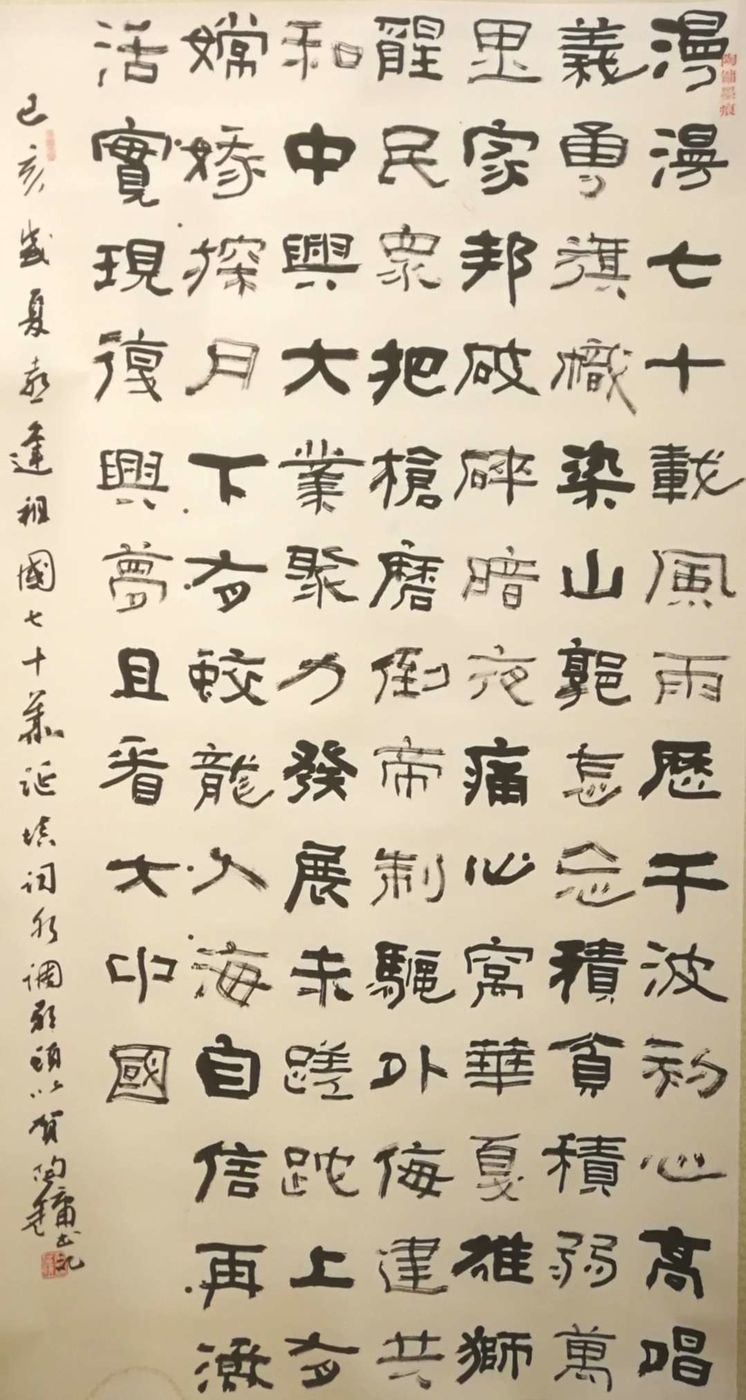 陶鏞墨痕
漫漫七十載風雨歷千波初心高唱
義勇旗幟染山郭怎忘積貧積弱萬
里家邦破碎暗夜痛心窩華夏雄獅
醒民眾把槍磨倒帝制驅外侮建共
和中興大業聚力發展未蹉跎上有
嫦娥探月下有蛟龍入海自信再激
活實現復興夢且看大中國
己亥歲夏喜逢祖國七十華誕填詞水調歌頭以賀陶鏞書記